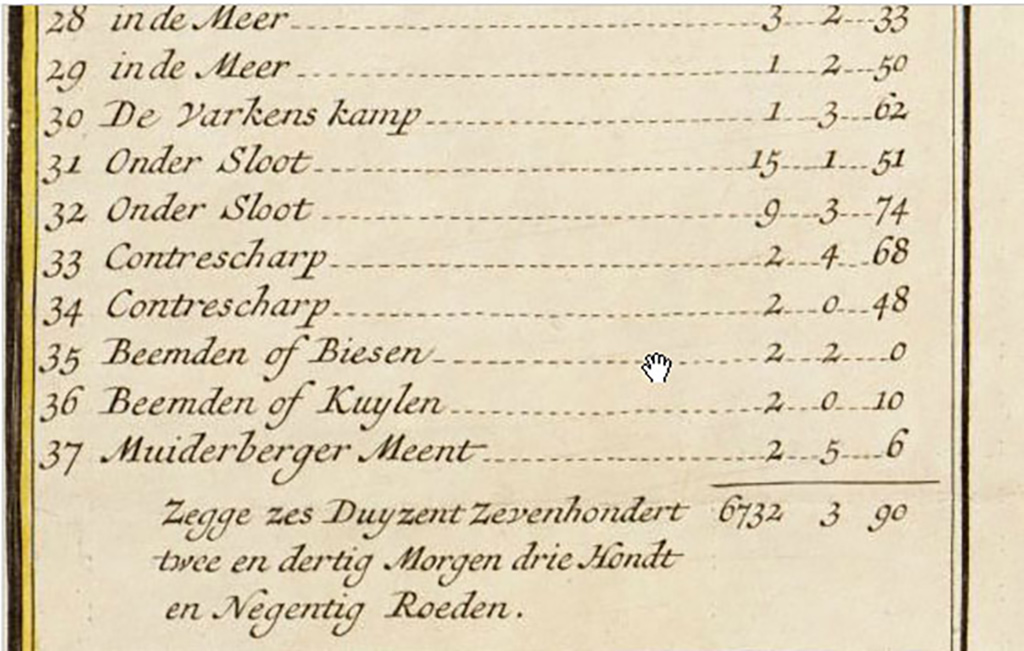 28 in de Meer 3 2 33
29 in de Meer 1 2 50
30 De Varkens kamp 1 3 62
31 Onder Sloot 15 1 51
32 Onder Sloot 9 3 74
33 Contrescharp 2 4 68
34 Contrescharp 2 0 48
35 Beemden of Biesen 2 2 0
36 Beemden of Kuylen 2 0 10
37 Muiderberger Meent 2 5 6
Zegge zes Duyzent Zevenhondert 6732 3 90
twee en dertig Morgen drie Hondt
en Negentig Roeden.